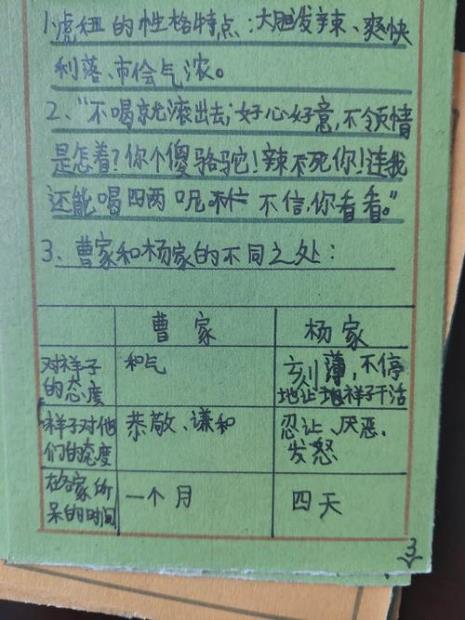 1、虎妞的性格特点:大胆泼辣、爽快
利落、市侩气浓。
2、"不喝就滚出去;好心好意,不领情
是怎着?你个傻骆驼!辣不死你!连我
还能喝四两呢 不信,你看看。"
3、曹家和杨家的不同之处:
曹家 杨家
对祥子的态度 和气 刻薄,不停地让祥子干活
祥子对他们的态度 恭敬、谦和 忍让、厌恶、发怒
在各家所呆的时间 一个月 四天
3